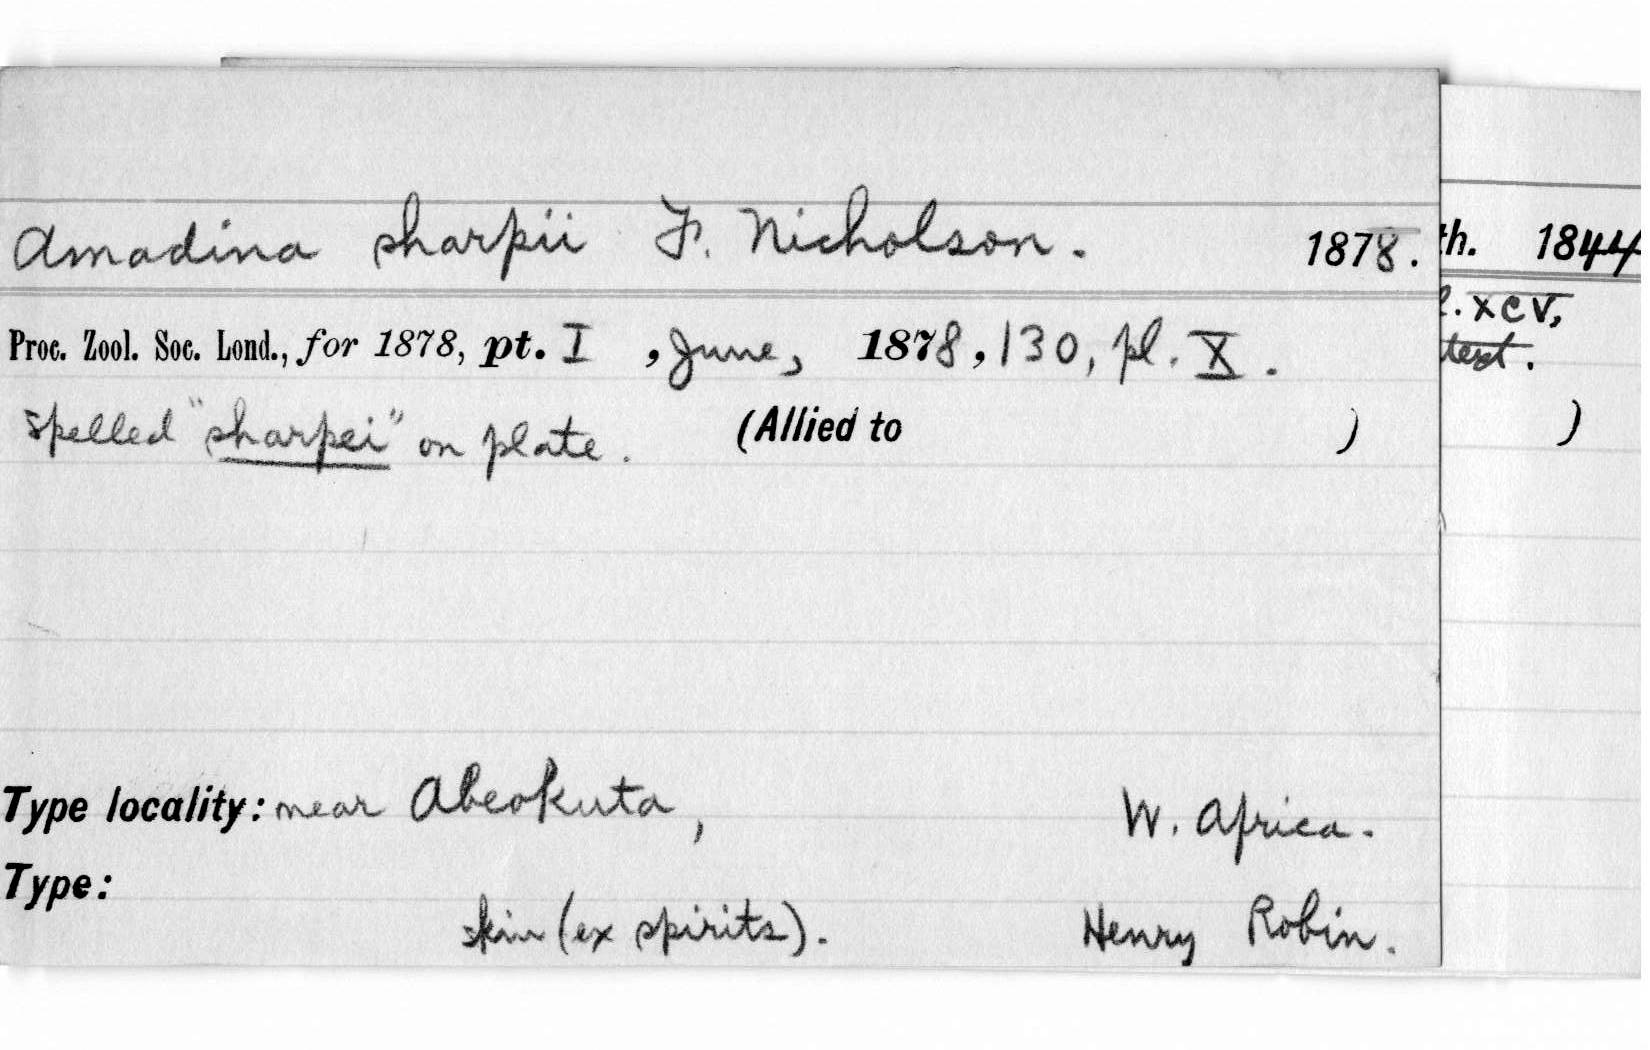 Amadina sharpii F. Nicholson. 1878.
Proc. Zool. Soc. Lond., for 1878, pt. I , June, 1878, 130, pl. X.
spelled "sharpei" on plate. (Allied to )
Type locality: near Abeokuta, W. Africa.
Type:
skin (ex spirits). Henry Robin.
th. 1844
l. XCV,
text.
)